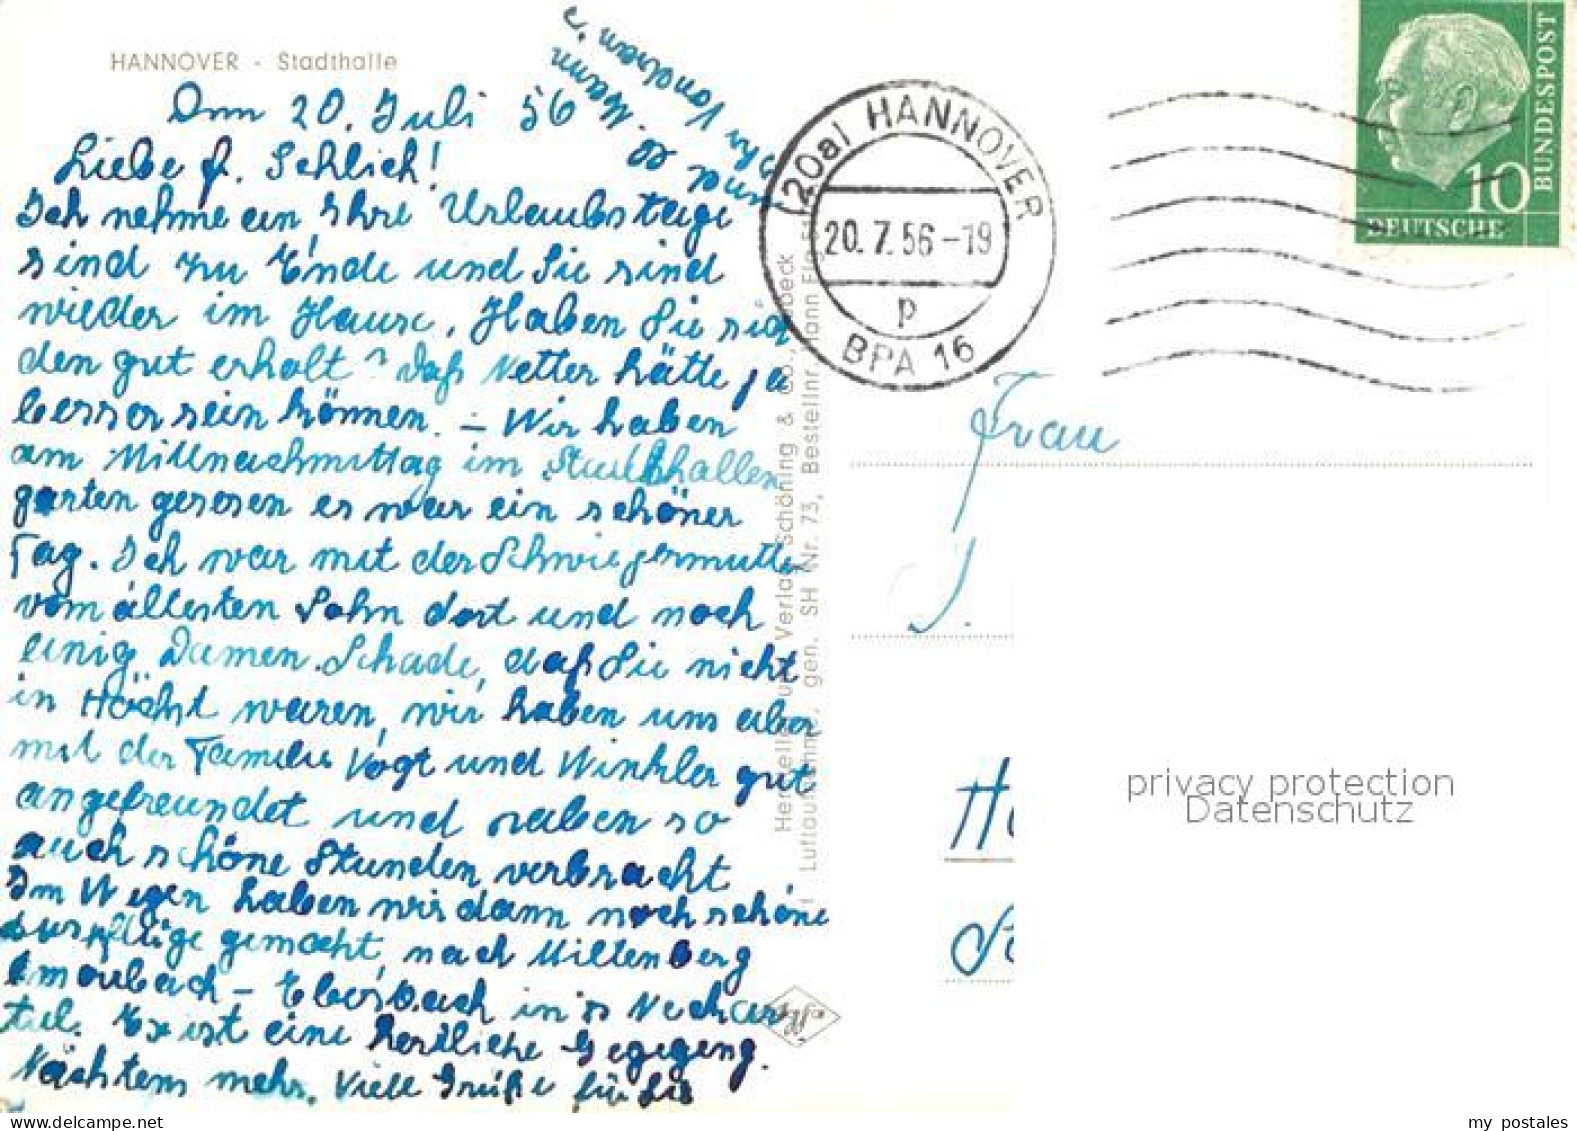 HANNOVER - Stadthalle
Am 20. Juli 56
Liebe f. Sehlich!
Ich nehme an, Ihre Urlaubstage
sind zu Ende und Sie sind
wieder im Hause, Haben Sie sich
den gut erholt? Daß Wetter hätte ja
besser sein können. – Wir haben
am Nachmittag im Stadthallen
garten gesesen es war ein schöner
Tag. Ich war mit der Schwiegermutter
vom ältesten Sohn dort und noch
einig Damen. Schade, daß Sie nicht
in Höchst waren, wir haben uns aber
mit der Familie Vogt und Winkler gut
angefreundet und haben so
auch schöne Stunden verbracht,
Im Wagen haben wir dann noch schöne
Ausflüge gemacht, nach Miltenberg
Amorbach – Ebersbach in's Neckar
tal. Es ist eine herrliche Gegegeng.
Nächtens mehr. Viele Grüße für Sie
und
(20a) HANNOVER
20.7.56-19
p
BPA 16
10
DEUTSCHE
BUNDESPOST
Frau
J.
privacy protection
Datenschutz
my postales
www.ansichtskarten-center.net